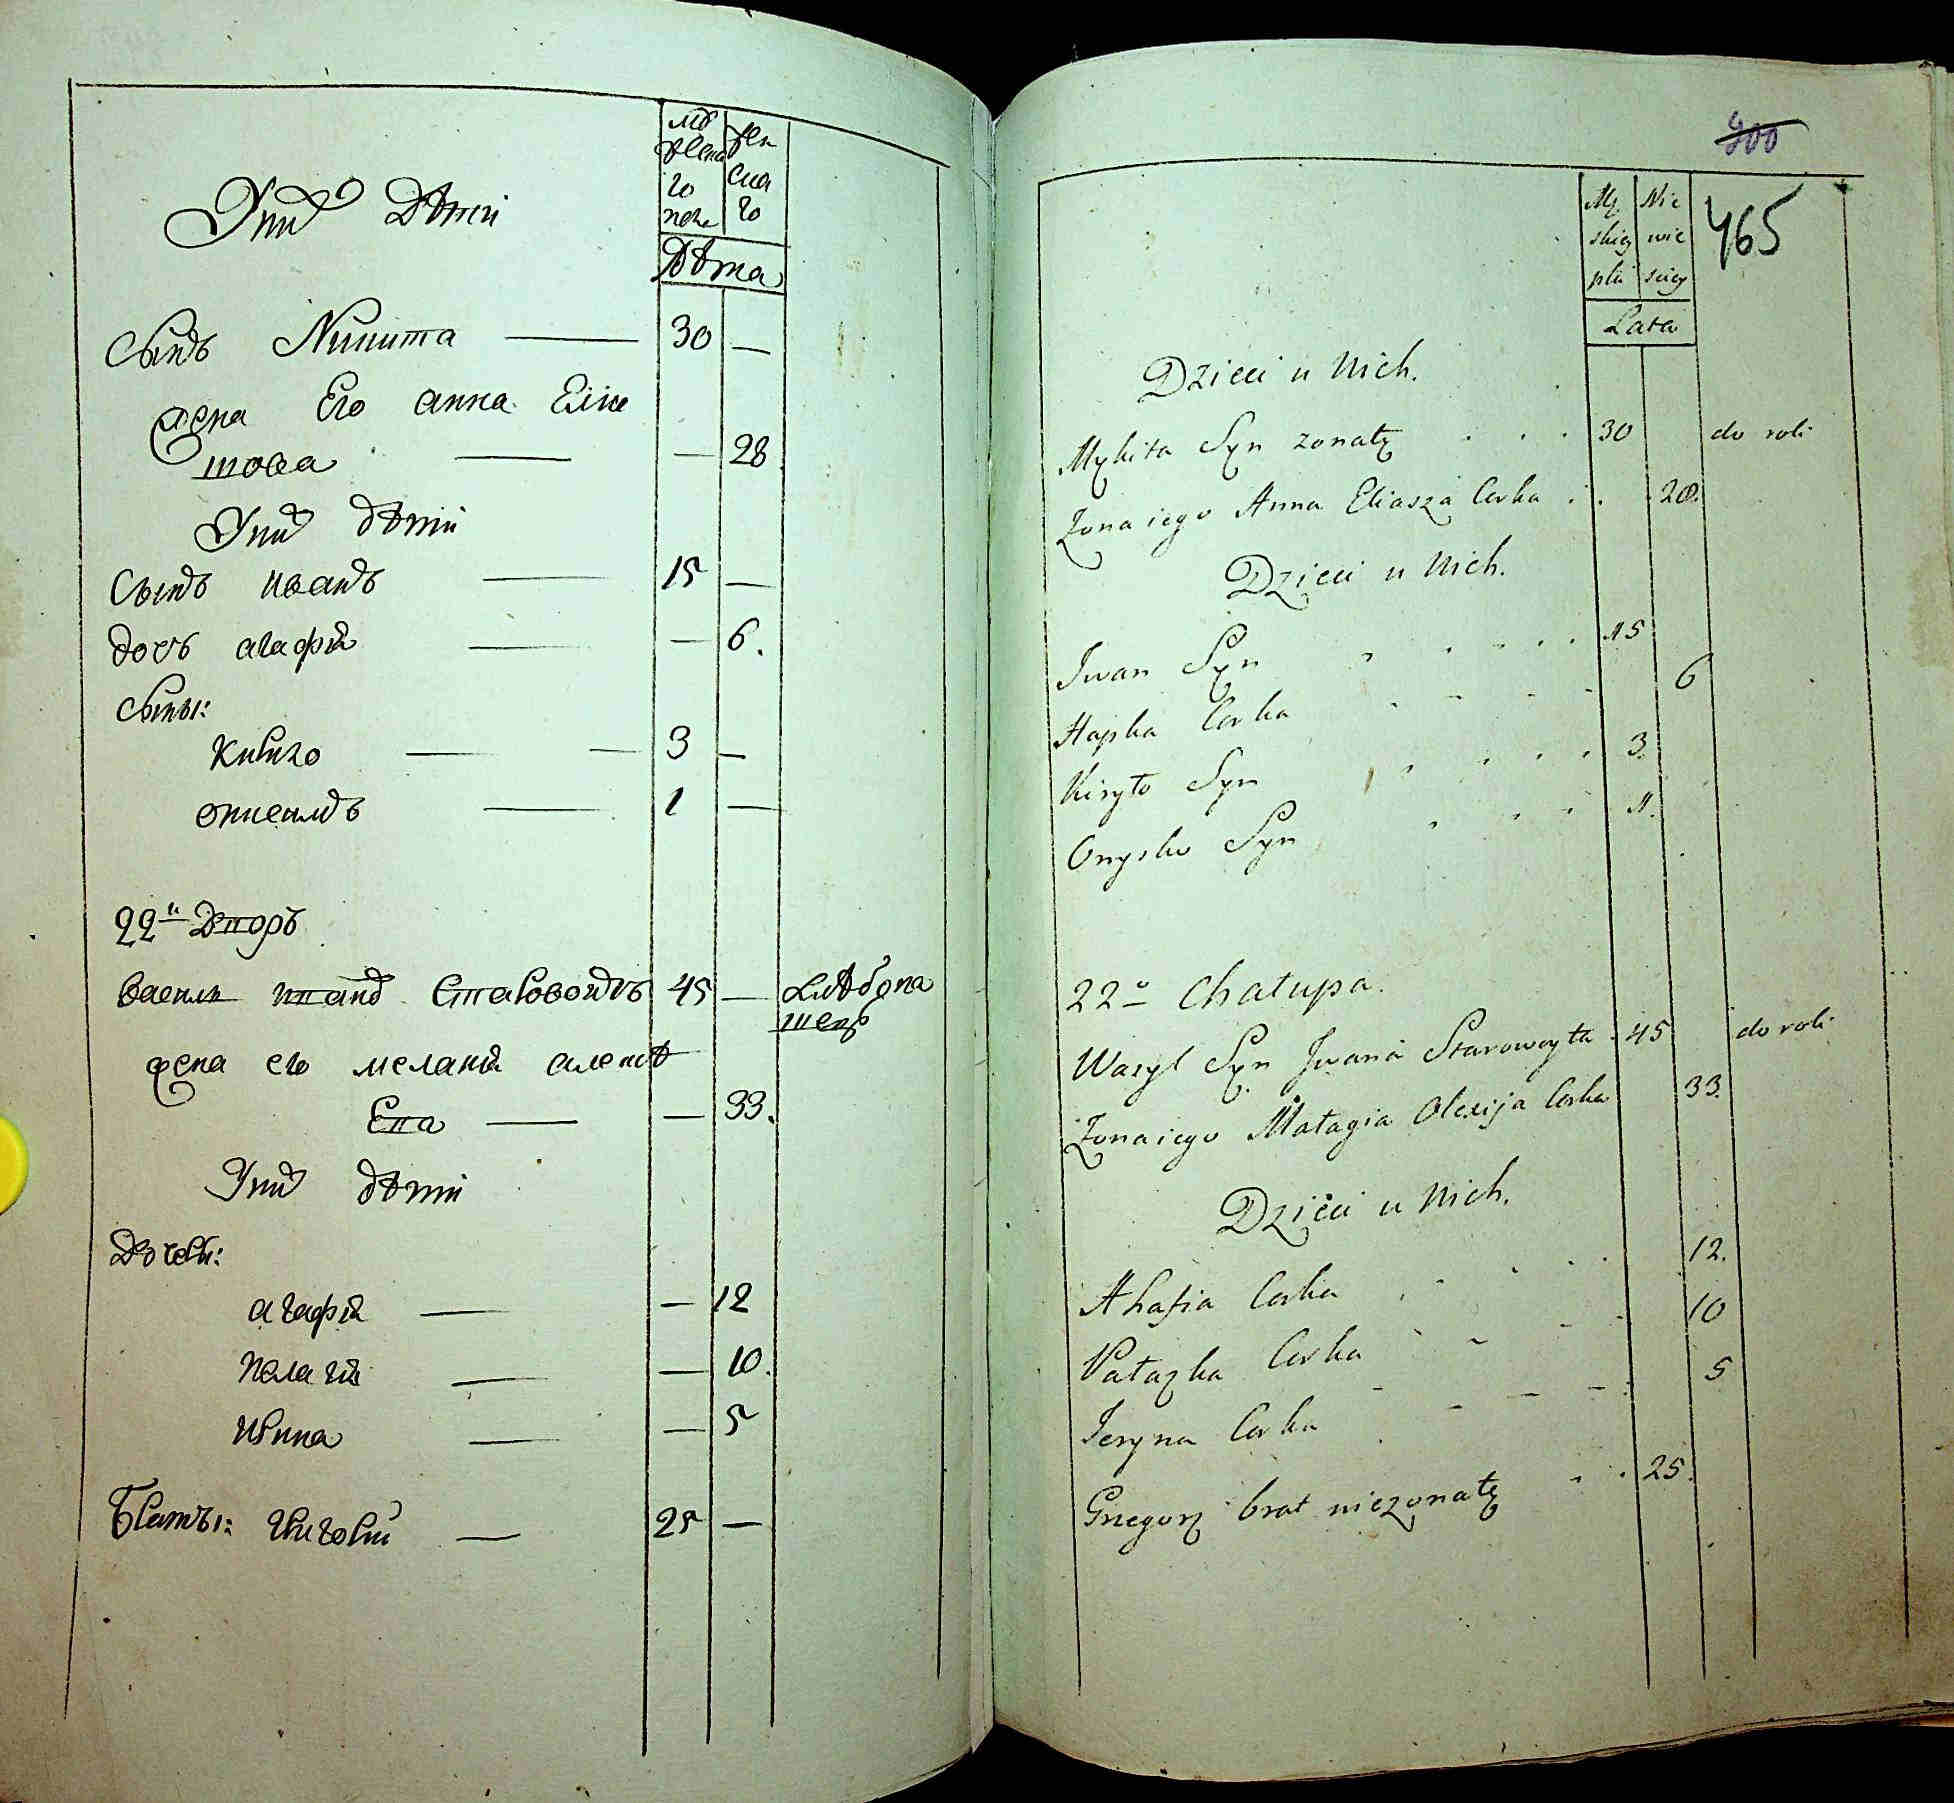 Унихъ Дѣтей
Мужескаго пола
Женскаго
Лѣта
Сынъ Никита — 30 —
жена Его анна Elіяс
това — — 28
Унихъ дѣтей
Сынъ иванъ — 15 —
дочь агафія — — 6.
Сыны:
Кирило — — 3 —
онисимъ — 1 —
22й Дворъ
василь ивановъ Старовойтъ 45 — хлѣбопа
шецъ
жена его меланія алексѣ
ева — — 33.
Унихъ дѣтей
Дочери:
агафія — — 12
пелагія — — 10.
ирина — — 5
Братъ: григорій — 25 —
900
465
Mę Nie
skiey wie
płci sciey
Lata
Dzieci u Nich.
Mykita Syn zonaty . . . 30 do roli
Zona iego Anna Eliasza Corka . . 28.
Dzieci u Nich.
Iwan Syn . . . . . 15
Hapka Corka . - - - 6
Kiryło Syn . . . . 3.
Onysko Syn . . . 1.
22o Chałupa.
Wasyl Syn Iwana Starowoyta . 45 do roli
Zona iego Małagia Olexija Corka 33.
Dzieci u Nich.
Ahafia Corka . . . . 12.
Pałazka Corka - - - . 10
Jeryna Corka - - - - 5
Gregorz brat niezonaty . . 25.